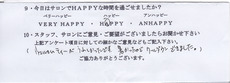 9・今日はサロンでHAPPYな時間を過ごせましたか？
ベリーハッピー　ハッピー　アンハッピー
VERY HAPPY ・ HAPPY ・ ANHAPPY
10・スタッフ、サロンにご意見・ご要望がございましたらお聞かせ下さい
上記アンケート項目に対しての細かなご意見などもご記入下さい。
ご協力ありがとうございます。